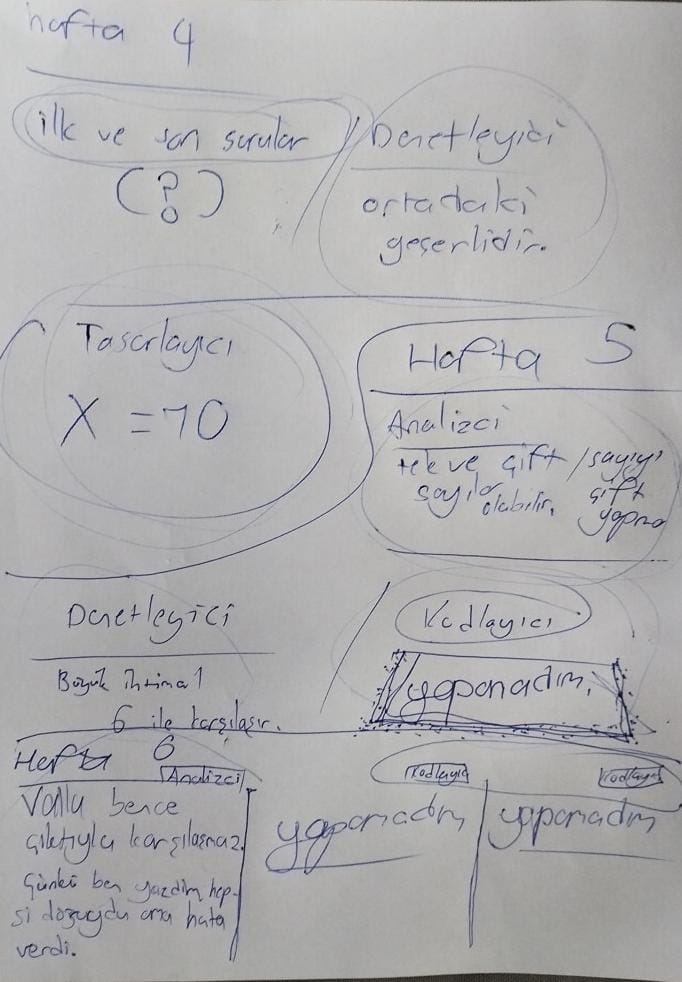 hafta 4
ilk ve son sorular
(?)
Denetleyici
ortadaki
geçerlidir.
Tasarlayıcı
X = 10
Hafta 5
Analizci
tek ve çift / sayıyı
sayılar çift
olabilir, yapma
Denetleyici
Büyük ihtimal
6 ile karşılaşır.
Kodlayıcı
yapamadım.
Hafta 6
Analizci
bence
karşılaşmaz.
Çünkü ben yazdım hep-
si doğruydu ama hata
verdi.
Kodlayıcı
yapamadım
Kodlayıcı
yapamadım